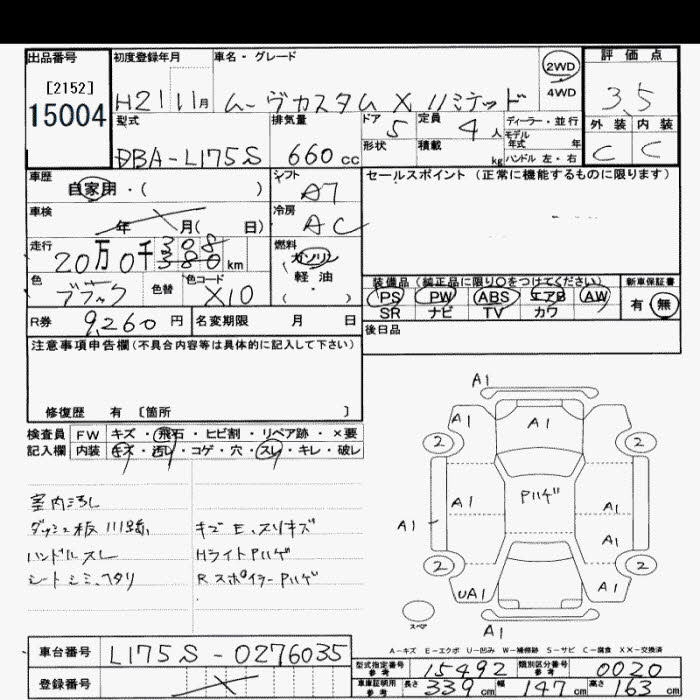 出品番号 初度登録年月 車名・グレード 2WD 評価点
[2152] 4WD
15004 H21 11月 ムーヴカスタム X リミテッド 3.5
型式 排気量 ドア 5 定員 4人 ディーラー・並行 外装 内装
モデル年式 年
DBA-L175S 660cc 形状 積載 kg ハンドル 左・右 C C
車歴 シフト セールスポイント (正常に機能するものに限ります)
自家用・( ) A7
車検 冷房
年 月( 日) AC
走行 燃料
20万0千308km ガソリン
380
軽油
色 色替 色コード ( ) 装備品 (純正品に限り○をつけてください) 新車保証書
ブラック X10 PS PW ABS エアB AW 有・無
SR ナビ TV カワ
R券 9,260円 名変期限 月 日 後日品
注意事項申告欄(不具合内容等は具体的に記入して下さい)
修復歴 有 〔箇所 〕
検査員 FW キズ・飛石・ヒビ割・リペア跡・×要
記入欄 内装 キズ・汚レ・コゲ・穴・スレ・キレ・破レ
室内汚レ
ダッシュ板 キズ E、スリキズ
ハンドルスレ HライトPハゲ
シートシミ、ヘタリ RスポイラーPハゲ
A1
A1 A1
2 2
A1 Pハゲ A1
A1 A1
2 2
UA1 A1
スペア A1
A-キズ E-エクボ U-凹み W-補修跡 S-サビ C-腐食 XX-交換済
車台番号 L175S-0276035
型式指定番号 参考 15492 類別区分番号 参考 0020
登録番号
車庫証明用 参考 長さ 339cm 幅 147cm 高さ 163cm